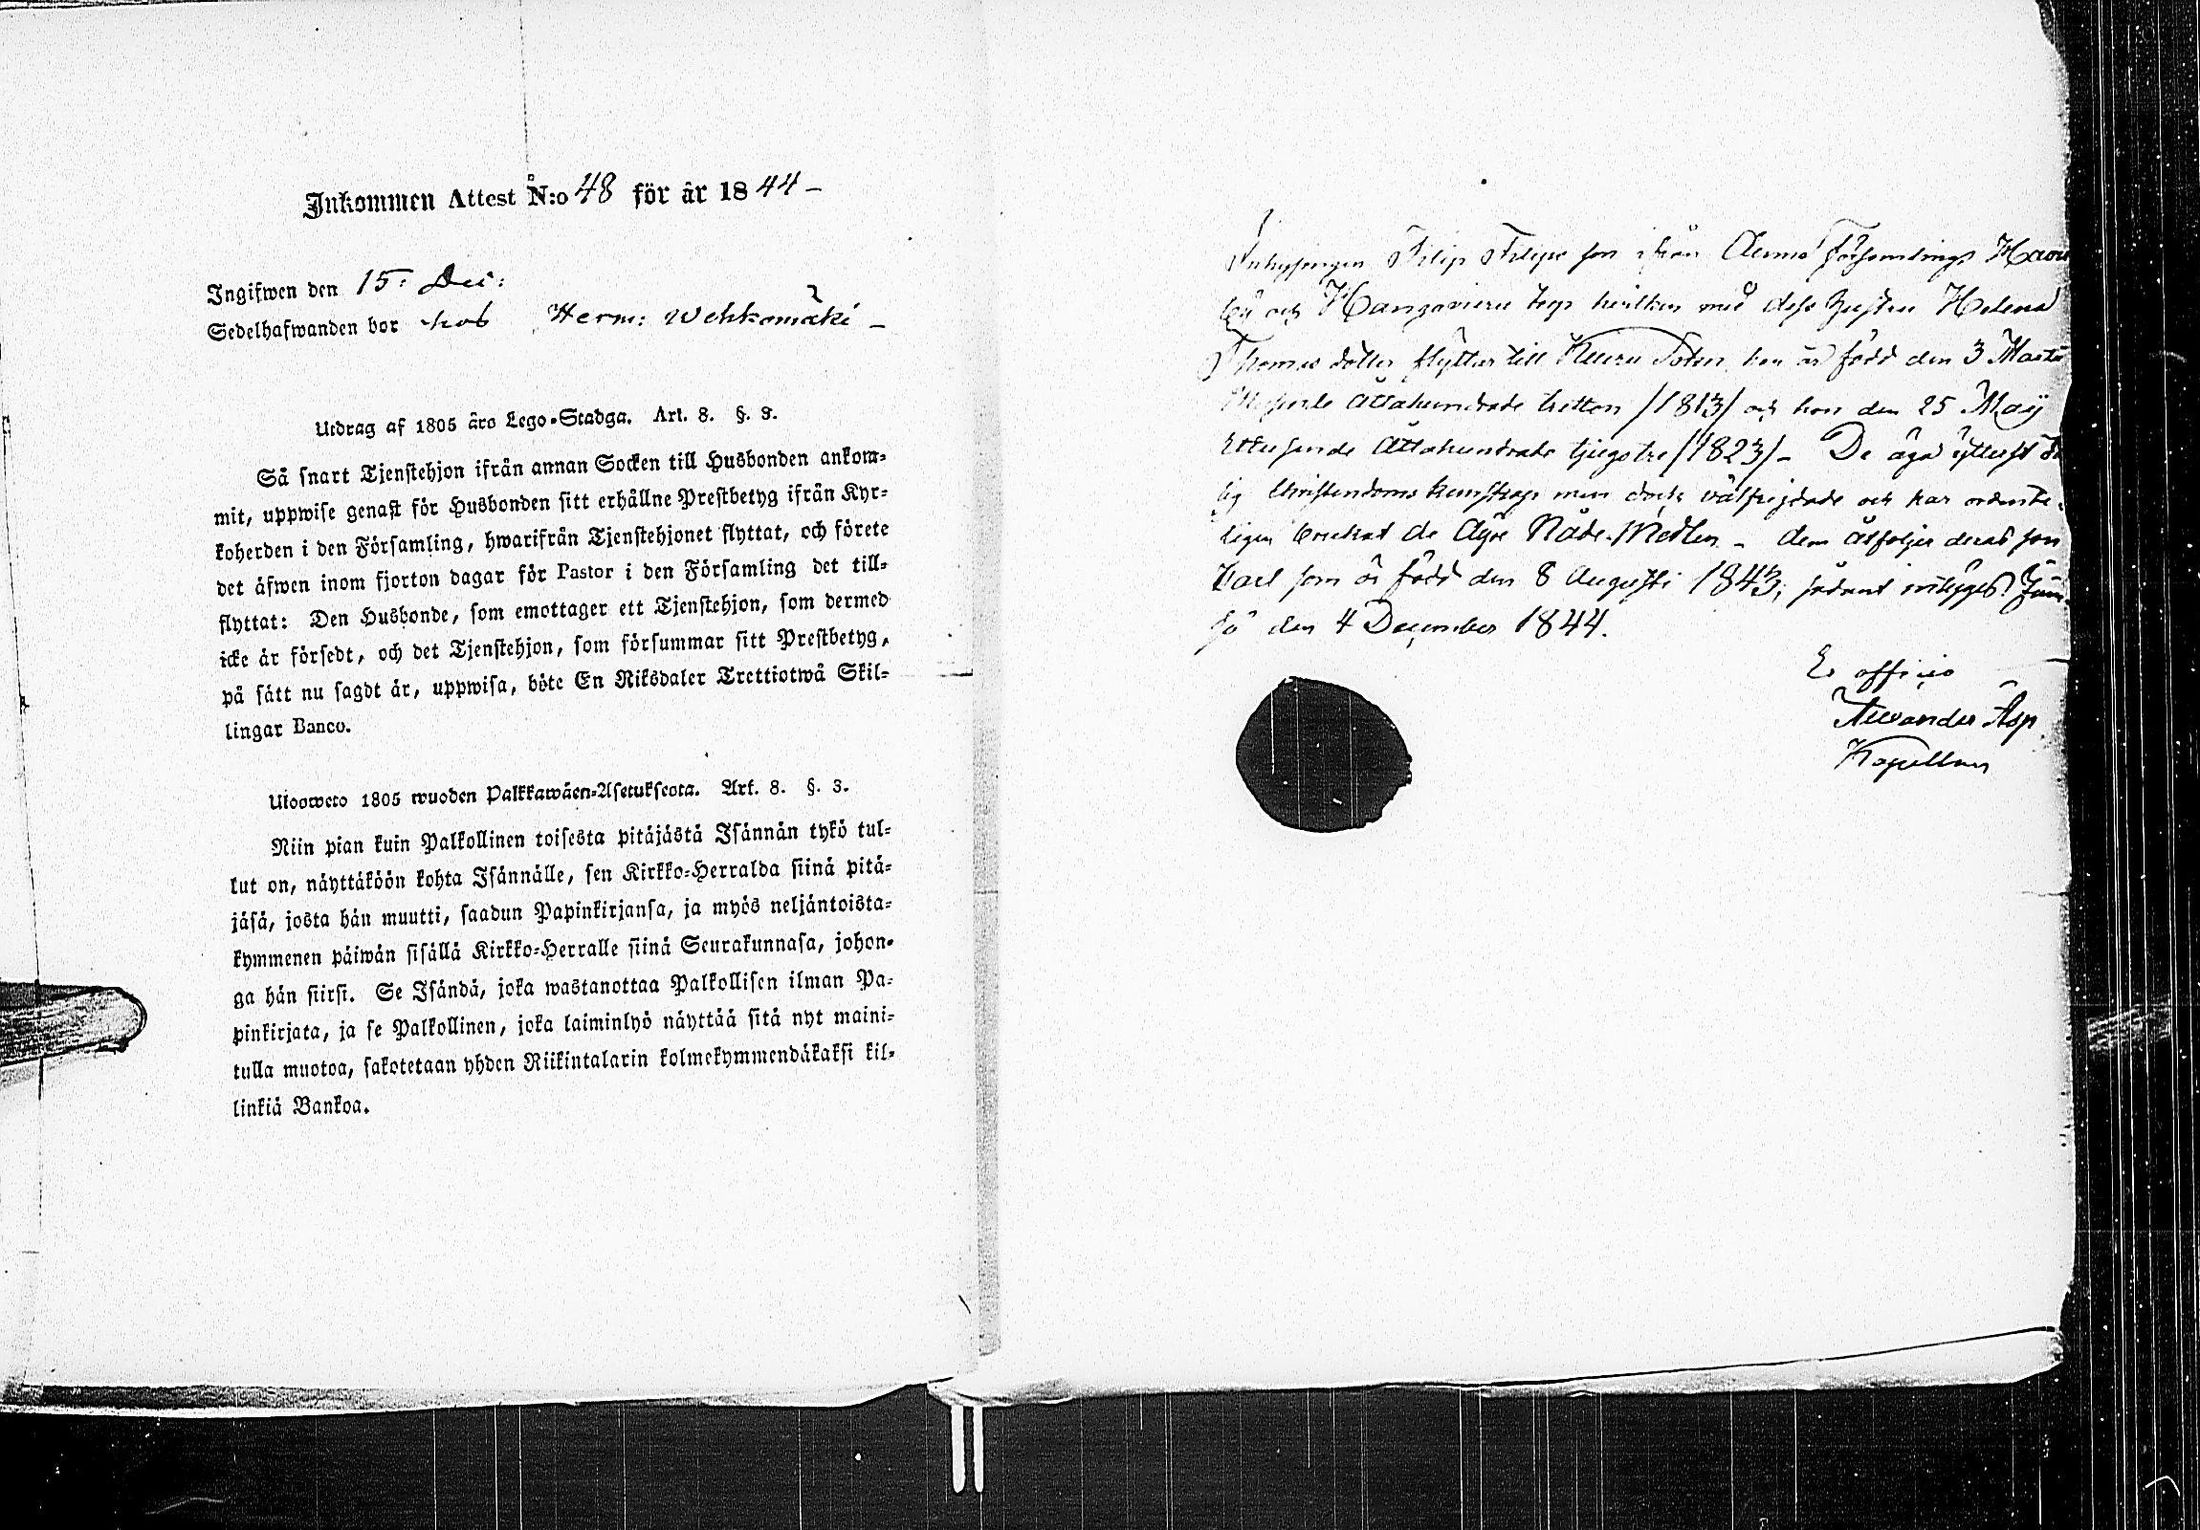 Inkommen Attest N:o 48 för år 1844 –
Ingifwen den 15: Dec:
Sedelhafwanden bor hos Herm: Wehkomäki –
Utdrag af 1805 års Lego-Stadga. Art. 8. §. 3.
Så snart Tjenstehjon ifrån annan Socken till Husbonden ankom-
mit, uppwise genast för Husbonden sitt erhållne Prestbetyg ifrån Kyr-
koherden i den Församling, hwarifrån Tjenstehjonet flyttat, och förete
det äfwen inom fjorton dagar för Pastor i den Församling det till-
flyttat: Den Husbonde, som emottager ett Tjenstehjon, som dermed
icke är försedt, och det Tjenstehjon, som försummar sitt Prestbetyg,
på sätt nu sagdt är, uppwisa, böte En Riksdaler Trettiotwå Skil-
lingar Banco.
Ulosweto 1805 wuoden Palkkawäen-Asetuksesta. Art. 8. §. 3.
Niin pian kuin Palkollinen toisesta pitäjästä Isännän tykö tul-
lut on, näyttäköön kohta Isännälle, sen Kirkko-Herralda siinä pitä-
jäsä, josta hän muutti, saadun Papinkirjansa, ja myös neljäntoista-
kymmenen päiwän sisällä Kirkko-Herralle siinä Seurakunnasa, johon-
ga hän siirsi. Se Isändä, joka wastanottaa Palkollisen ilman Pa-
pinkirjata, ja se Palkollinen, joka laiminlyö näyttää sitä nyt maini-
tulla muotoa, sakotetaan yhden Riikintalarin kolmekymmendäkaksi kil-
linkiä Bankoa.
Inhysingen Filip Filips son ifrån Församlings
by och torp hvilken med dess hustru Helena
Thomas dotter flyttar till Keuru Socken, han är född den 3 Martii
Ettusende Åttahundrade tretton /1813/ och hon den 25 Maij
Ettusende Åttahundrade tjugotre /1823/ – De äga ytterst
lig Christendoms kunskap men dock välfrejdade och har ordente-
ligen brukat de Dyre Nåde-Medlen – dem åtföljer deras son
Karl som är född den 8 Augusti 1843; sådant intygas
den 4 December 1844.
Ex officio
Alexander Asp
Kapellan